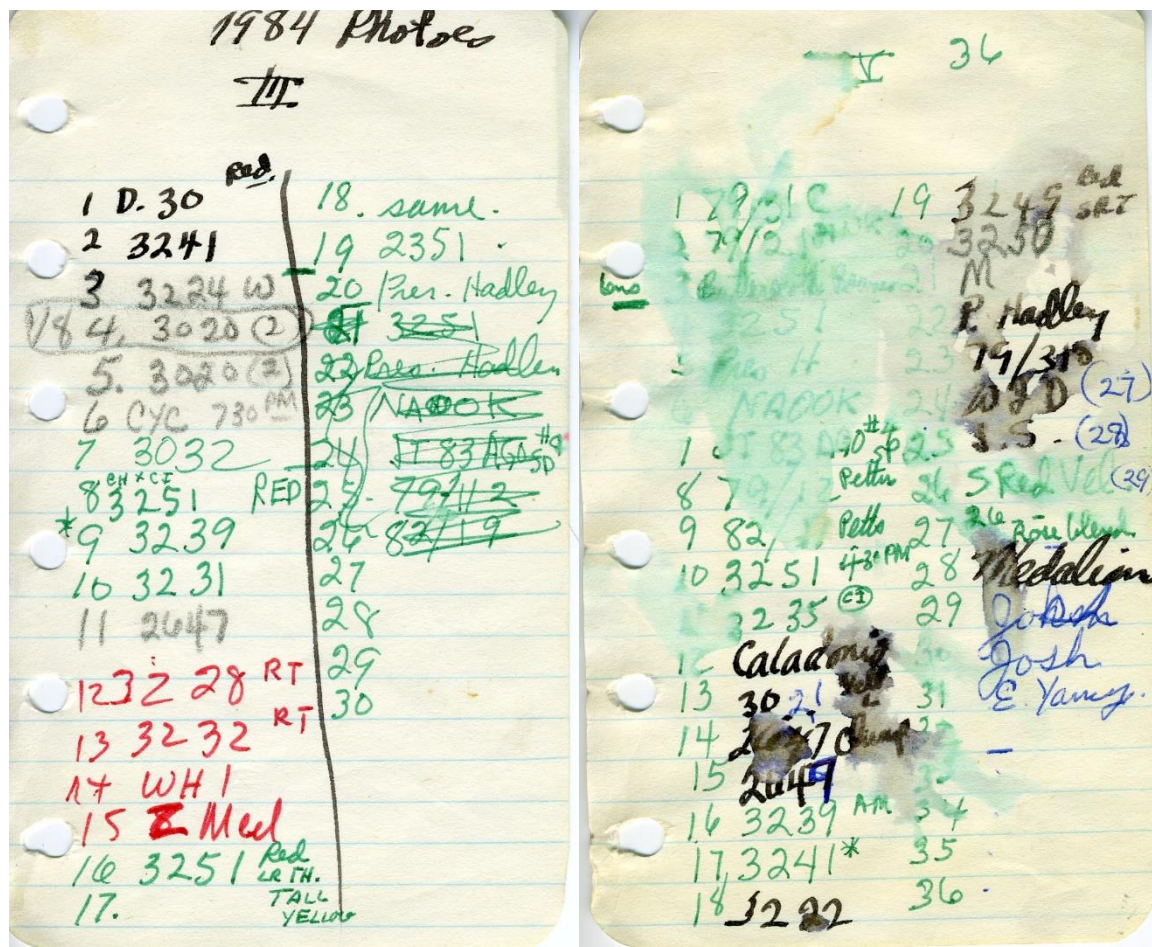 1984 Photoes
III
Red.
1 D. 30
2 3241
3 3224 W
1/8 4. 3020 (2)
5. 3020 (2)
6 CYC 730 PM
7 3032
CH x CI
8 3251 RED
* 9 3239
10 3231
11 2647
12 32 28 RT
13 3232 RT
14 WH 1
15 Med
16 3251 Red
LR TH.
17. TALL
YELLOW
18. same.
19 2351
20 Pres. Hadley
21 3251
22 Pres. Hadley
23 NAOOK
24 JT 83 AGO #9
SD
25. 79/112
26 82/19
27
28
29
30
V 36
1 79/31 C
2 79/2
3
3251
Pres H
NAOOK
JT 83 AGO #4
8 79/12
9 82/ Petts
10 3251 4:30 PM
3235 CI
Caladonia
13 30 21
14 Clump
15 2647
16 3239 AM
17, 3241*
18 3222
19 3249 Red
SRT
3250
21 M
22 P. Hadley
23 79/31
24 (27)
25 J.S. (28)
26 5 Red Vel (29)
27
28 Medalion
29 Josh
30 Josh
31 E. Yancy.
34
35
36